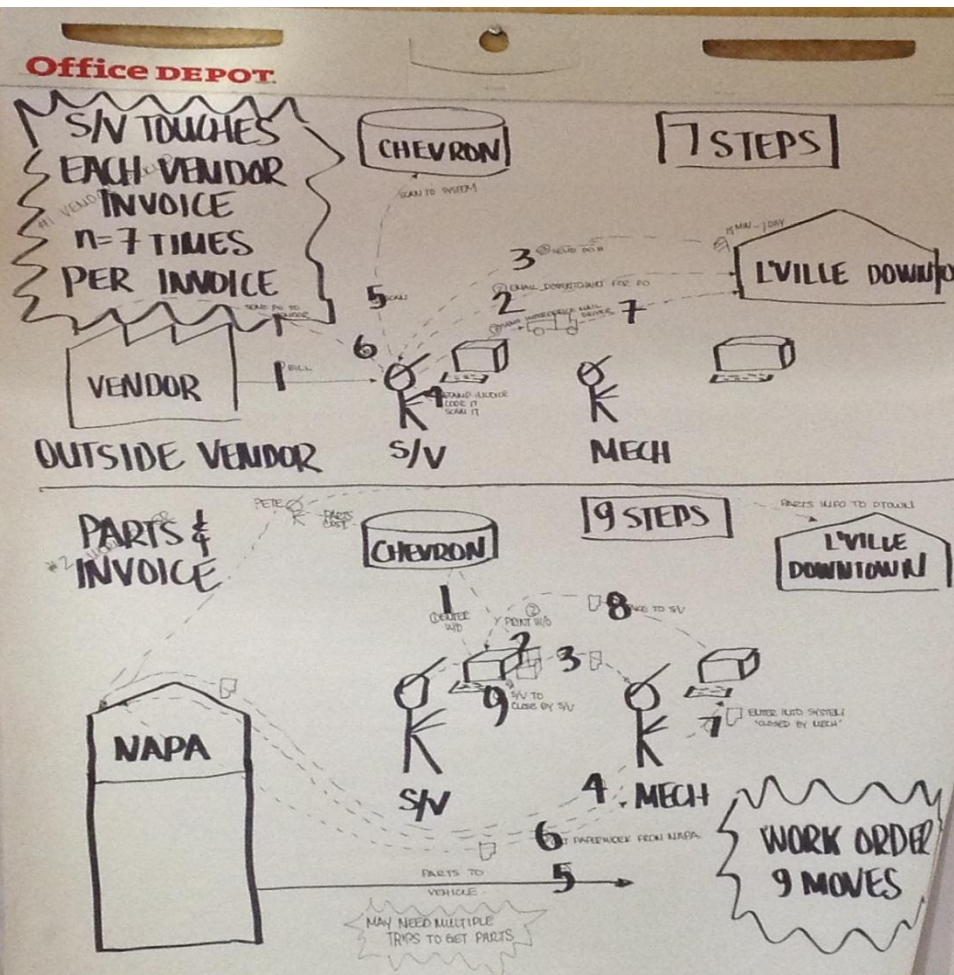 Office DEPOT.
S/V TOUCHES
EACH VENDOR
INVOICE
n=7 TIMES
PER INVOICE
CHEVRON
7 STEPS
SCAN TO SYSTEM
15 MIN - 1 DAY
3
L'VILLE DOWNTO
2 EMAIL DOWNTOWN FOR PO
5 SCAN
SEND PO TO
VENDOR
7
DRIVER
6
VENDOR
1 BILL
4 STAMP INVOICE
CODE IT
SCAN IT
S/V
MECH
OUTSIDE VENDOR
PARTS &
INVOICE
PETE
PARTS
COST
CHEVRON
9 STEPS
PARTS INFO TO DTOWN
L'VILLE
DOWNTOWN
1
① ENTER
W/O
②
PRINT W/O
2
3
8
TO S/V
9 S/V TO
CLOSE BY S/V
7
ENTER INTO SYSTEM
"CLOSED BY MECH"
NAPA
S/V
4
MECH
6
PAPERWORK FROM NAPA
PARTS TO
VEHICLE
5
MAY NEED MULTIPLE
TRIPS TO GET PARTS
WORK ORDER
9 MOVES